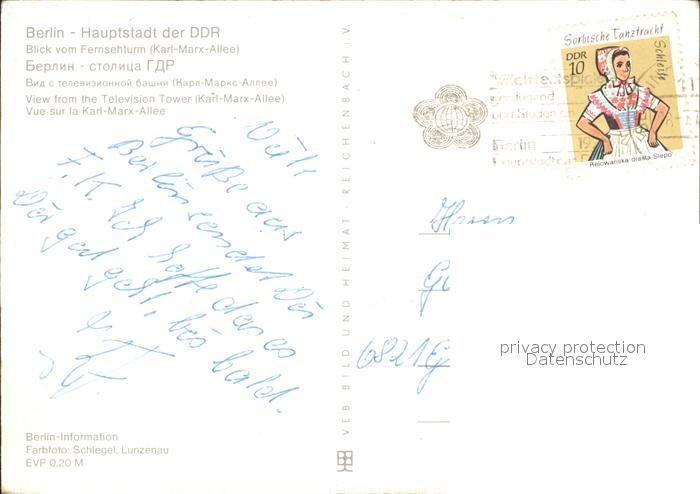 Berlin - Hauptstadt der DDR
Blick vom Fernsehturm (Karl-Marx-Allee)
Берлин - столица ГДР
Вид с телевизионной башни (Карл-Маркс-Аллее)
View from the Television Tower (Karl-Marx-Allee)
Vue sur la Karl-Marx-Allee
Grüße aus
Berlin sendet Dir
F. K. Ich hoffe das es
Dir gut geht, bis bald.
Berlin-Information
Farbfoto: Schlegel, Lunzenau
EVP 0,20 M
VEB BILD UND HEIMAT · REICHENBACH i. V.
Sorbische Tanztracht
Schleife
DDR
10
"Rejowanska drasta Slepo"
Weltfestspiele
der Jugend
und Studenten
Berlin 19
Hauptstadt d
Herrn
6821
privacy protection
Datenschutz